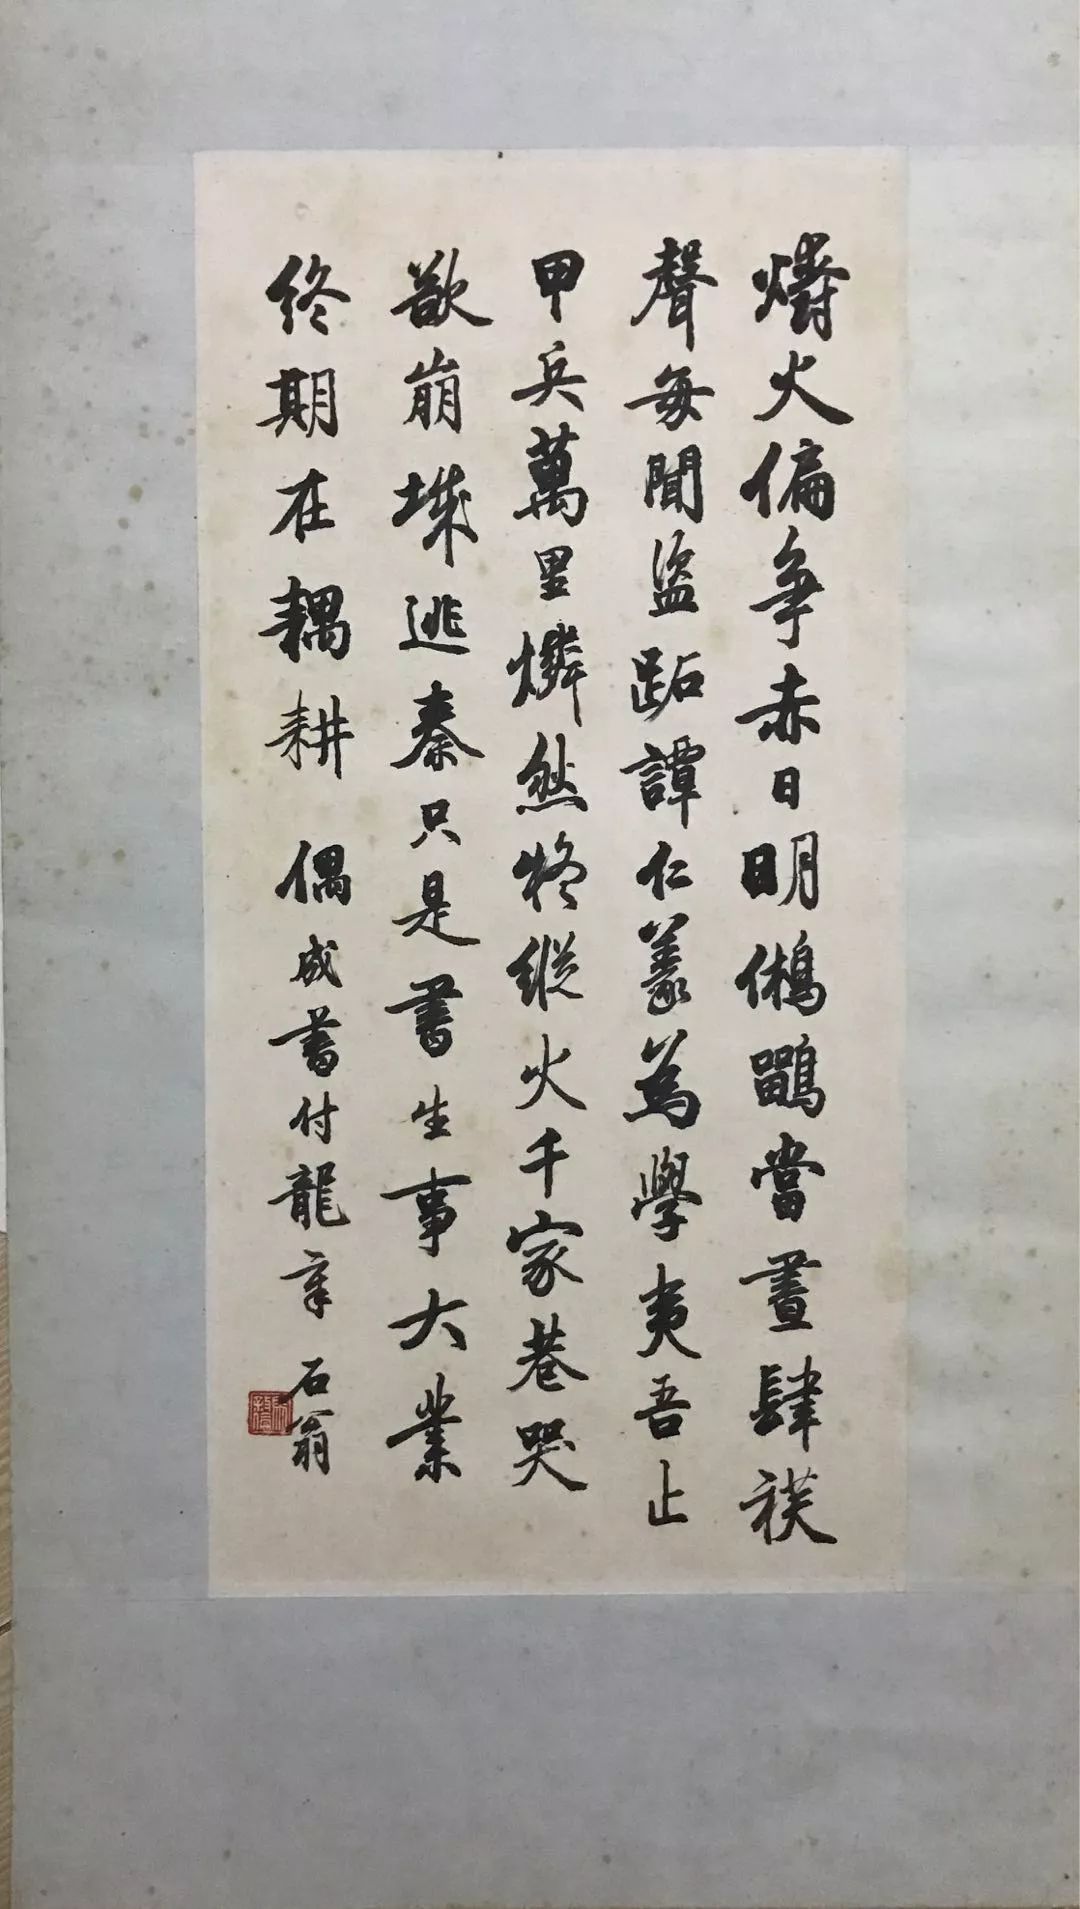 爝火偏爭赤日明鵂鶹當晝肆祅
聲每聞盜跖譚仁義為學夷吾止
甲兵萬里燐然將縱火千家巷哭
欲崩城逃秦只是書生事大業
終期在耦耕 偶成書付龍 石翁